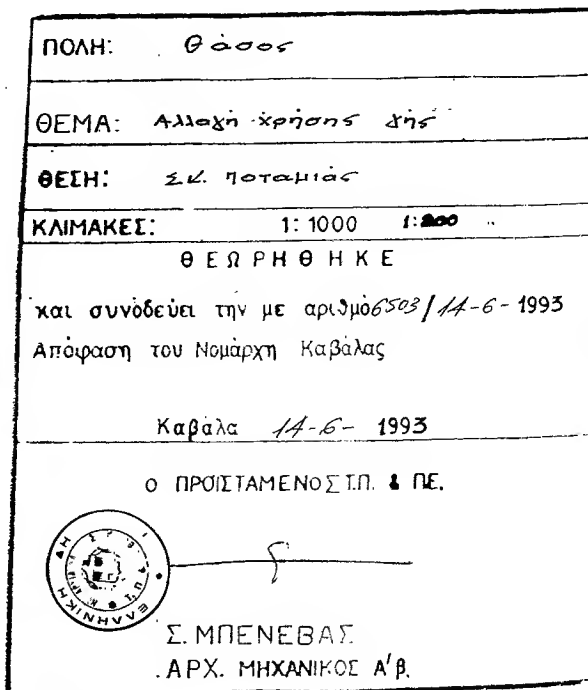 ΠΟΛΗ: Θάσος
ΘΕΜΑ: Αλλαγή χρήσης γής
ΘΕΣΗ: Σκ. Ποταμιάς
ΚΛΙΜΑΚΕΣ: 1:1000 1:200
ΘΕΩΡΗΘΗΚΕ
και συνοδεύει την με αριθμό 6503/14-6-1993
Απόφαση του Νομάρχη Καβάλας
Καβάλα 14-6-1993
Ο ΠΡΟΙΣΤΑΜΕΝΟΣ Τ.Π. & ΠΕ.
ΕΛΛΗΝΙΚΗ ΔΗ
Σ. ΜΠΕΝΕΒΑΣ
ΑΡΧ. ΜΗΧΑΝΙΚΟΣ Α'β.